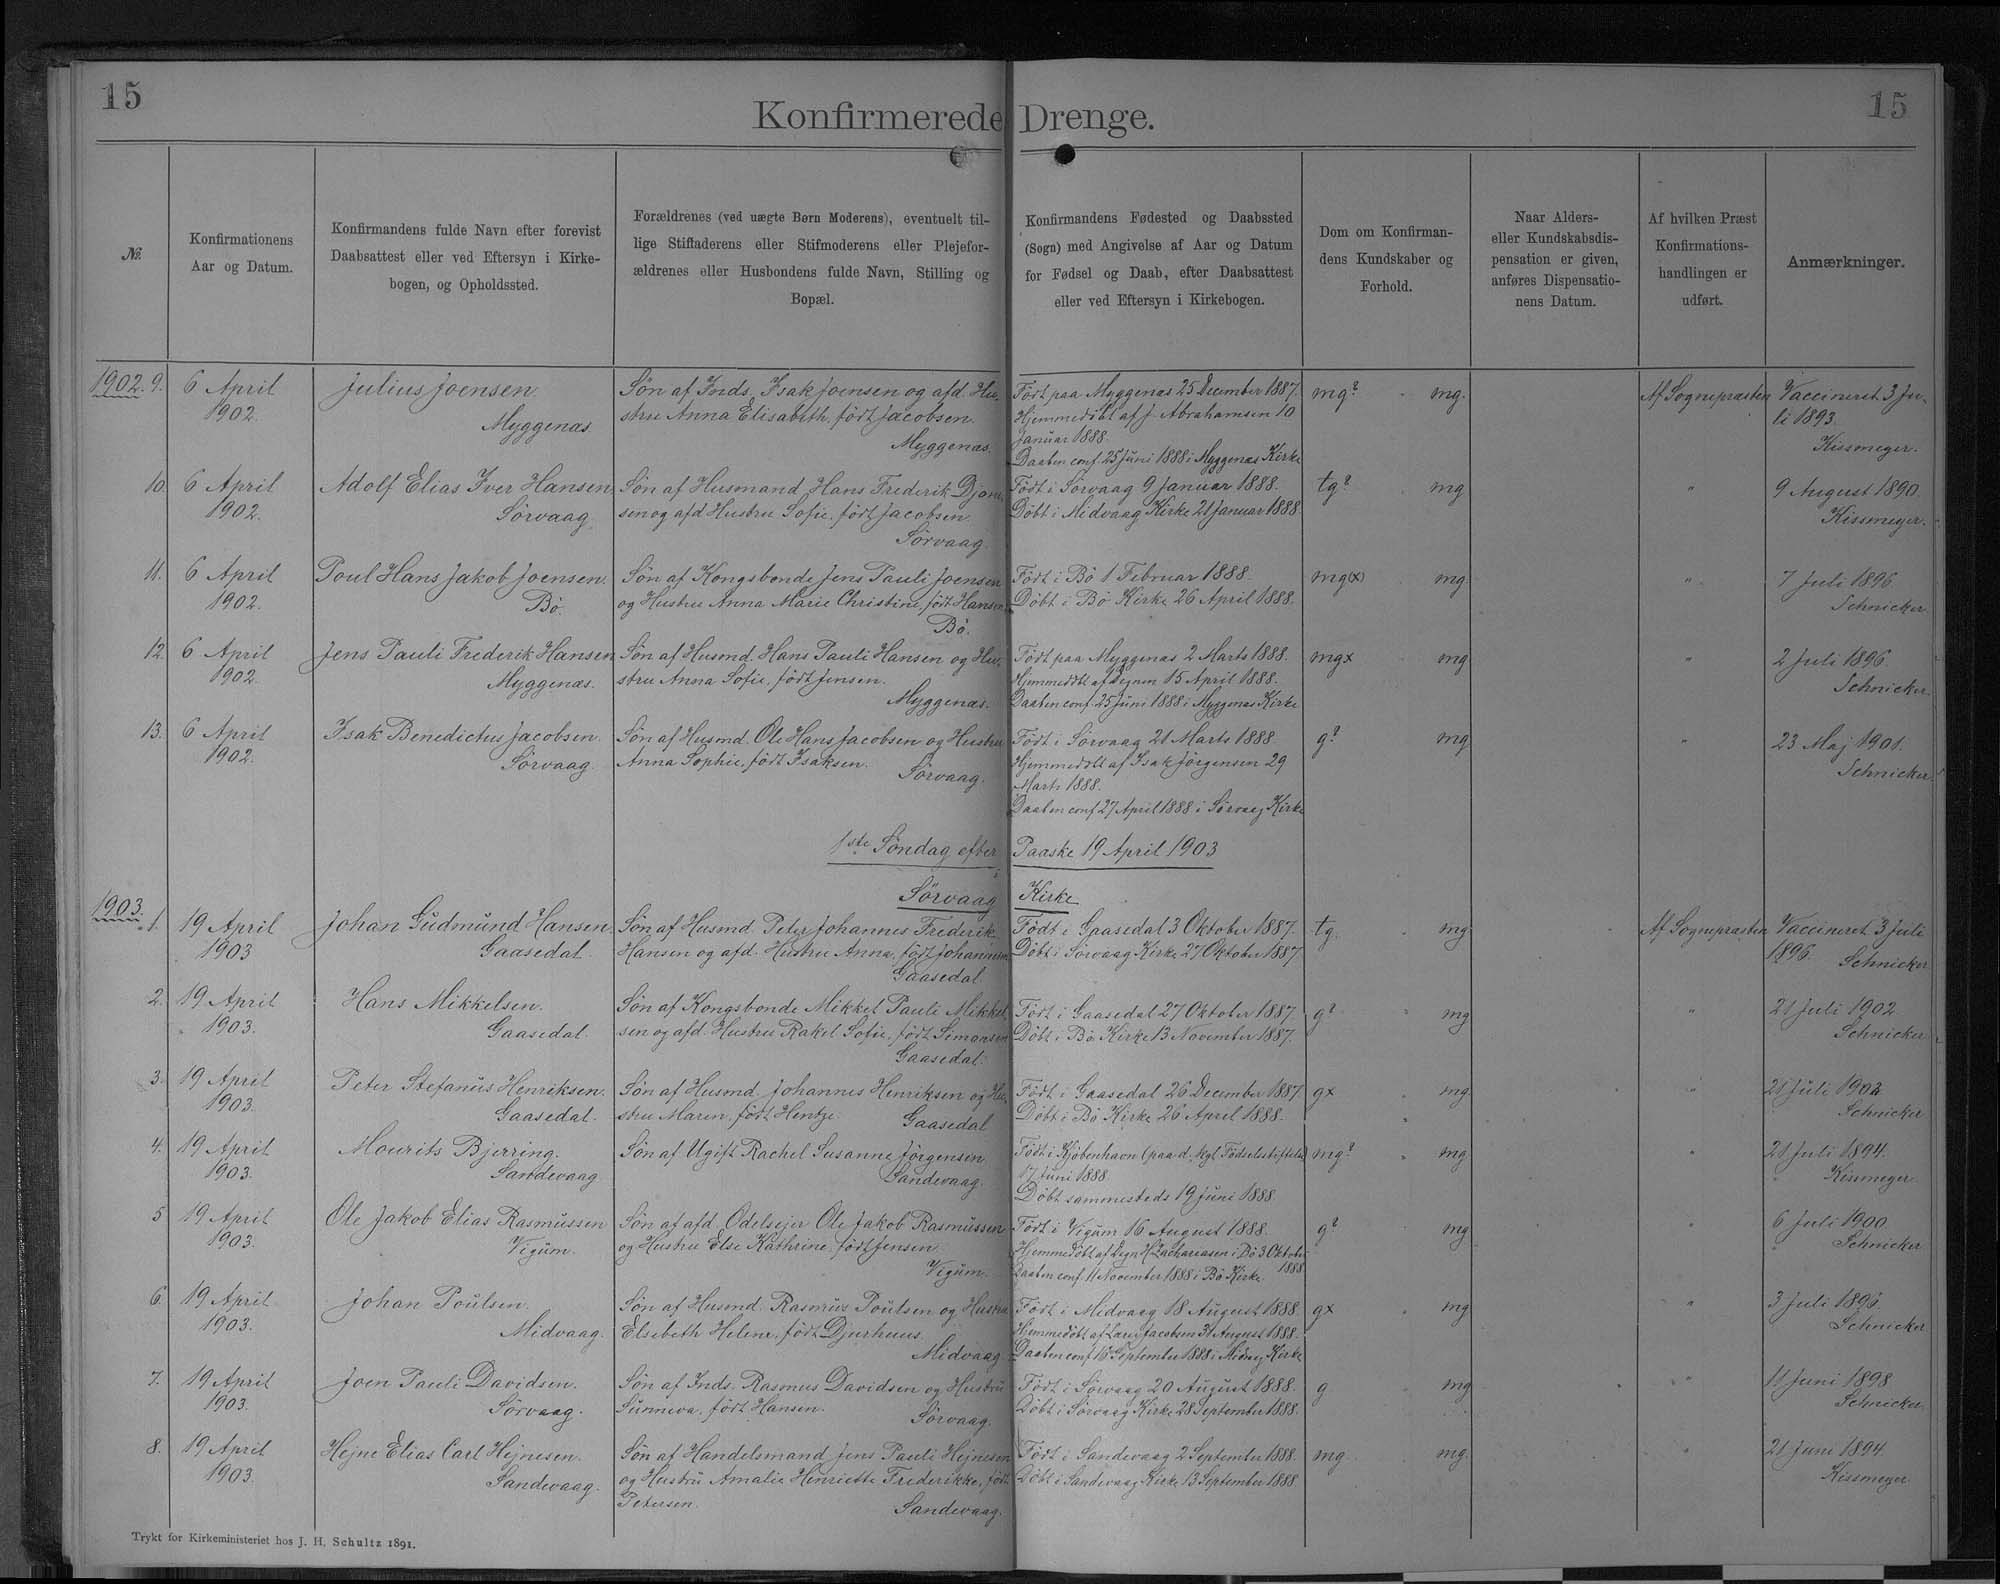 15
15
Konfirmerede Drenge.
№.
Konfirmationens
Aar og Datum.
Konfirmandens fulde Navn efter forevist
Daabsattest eller ved Eftersyn i Kirke-
bogen, og Opholdssted.
Forældrenes (ved uægte Børn Moderens), eventuelt til-
lige Stiffaderens eller Stifmoderens eller Plejefor-
ældrenes eller Husbondens fulde Navn, Stilling og
Bopæl.
Konfirmandens Fødested og Daabssted
(Sogn) med Angivelse af Aar og Datum
for Fødsel og Daab, efter Daabsattest
eller ved Eftersyn i Kirkebogen.
Dom om Konfirman-
dens Kundskaber og
Forhold.
Naar Alders-
eller Kundskabsdis-
pensation er given,
anføres Dispensatio-
nens Datum.
Af hvilken Præst
Konfirmations-
handlingen er
udført.
Anmærkninger.
1902. 9.
6 April
1902.
Julius Joensen.
Myggenæs.
Søn af Inds. Isak Joensen og afd. Hu-
stru Anna Elisabeth, født Jacobsen.
Myggenæs.
Født paa Myggenæs 25 December 1887.
Hjemmedøbt af J. Abrahamsen 10
Januar 1888.
Daaben conf. 25 Juni 1888 i Myggenæs Kirke
mg? mg.
Af Sognepræsten
Vaccineret 3 Ju-
li 1893.
Kissmeyer.
10.
6 April
1902.
Adolf Elias Iver Hansen
Sørvaag.
Søn af Husmand Hans Frederik Djoni-
sen og afd Hustru Sofie, født Jacobsen.
Sørvaag.
Født i Sørvaag 9 Januar 1888.
Døbt i Midvaag Kirke 21 Januar 1888.
tg? mg
"
9 August 1890.
Kissmeyer.
11.
6 April
1902.
Poul Hans Jakob Joensen.
Bø.
Søn af Kongsbonde Jens Pauli Joensen
og Hustru Anna Marie Christine, født Hansen
Bø.
Født i Bø 1 Februar 1888.
Døbt i Bø Kirke 26 April 1888.
mg(x) mg
"
7 Juli 1896
Schnicker.
12.
6 April
1902.
Jens Pauli Frederik Hansen
Myggenæs.
Søn af Husmd. Hans Pauli Hansen og Hu-
stru Anna Sofie, født Jensen.
Myggenæs.
Født paa Myggenæs 2 Marts 1888.
Hjemmedøbt af Degnen 15 April 1888.
Daaben conf. 25 Juni 1888 i Myggenæs Kirke
mgx mg
"
2 Juli 1896.
Schnicker.
13.
6 April
1902.
Isak Benedictus Jacobsen.
Sørvaag.
Søn af Husmd. Ole Hans Jacobsen og Hustru
Anna Sophie, født Isaksen.
Sørvaag.
Født i Sørvaag 21 Marts 1888.
Hjemmedøbt af Isak Jørgensen 29
Marts 1888.
Daaben conf 27 April 1888 i Sørvaag Kirke
g? mg
"
23 Maj 1901.
Schnicker.
1ste Søndag efter Paaske 19 April 1903
Sørvaag Kirke
1903. 1.
19 April
1903
Johan Gudmund Hansen.
Gaasedal.
Søn af Husmd. Peter Johannes Frederik
Hansen og afd. Hustru Anna, født Johannesen
Gaasedal.
Født i Gaasedal 3 Oktober 1887.
Døbt i Sørvaag Kirke 27 Oktober 1887
tg. mg
Af Sognepræsten
Vaccineret 3 Juli
1896. Schnicker
2.
19 April
1903.
Hans Mikkelsen.
Gaasedal.
Søn af Kongsbonde Mikkel Pauli Mikkel-
sen og afd. Hustru Rakel Sofie, født Simonsen
Gaasedal.
Født i Gaasedal 27 Oktober 1887.
Døbt i Bø Kirke 13 November 1887.
g? mg
"
21 Juli 1902
Schnicker
3.
19 April
1903.
Peter Stefanus Henriksen.
Gaasedal.
Søn af Husmd. Johannes Henriksen og Hu-
stru Maren, født Hentze.
Gaasedal
Født i Gaasedal 26 December 1887.
Døbt i Bø Kirke 26 April 1888.
gx mg.
"
21 Juli 1902
Schnicker
4.
19 April
1903.
Mourits Bjerring.
Sandevaag
Søn af Ugift Rachel Susanne Jørgensen
Sandevaag.
Født i Kjøbenhavn (paa d. kgl Fødselsstiftelse)
17 Juni 1888.
Døbt sammesteds 19 Juni 1888.
mg? mg
"
21 Juli 1894.
Kissmeyer.
5
19 April
1903.
Ole Jakob Elias Rasmussen
Vigum.
Søn af afd. Odelsejer Ole Jakob Rasmussen
og Hustru Else Kathrine, født Jensen.
Vigum.
Født i Vigum 16 August 1888.
Hjemmedøbt af Degn H Zachariasen i Bø 3 Oktober
1888
Daaben conf. 11 November 1888 i Bø Kirke.
g? mg
"
6 Juli 1900.
Schnicker
6.
19 April
1903.
Johan Poulsen.
Midvaag.
Søn af Husmd. Rasmus Poulsen og Hustru
Elsebeth Helene, født Djurhuus.
Midvaag.
Født i Midvaag 18 August 1888.
Hjemmedøbt af Lars Jacobsen 31 August 1888.
Daaben conf. 16 September 1888 i Midvaag Kirke
gx mg
"
3 Juli 1896.
Schnicker
7.
19 April
1903.
Joen Pauli Davidsen.
Sørvaag.
Søn af Inds. Rasmus Davidsen og Hustru
Sunneva, født Hansen.
Sørvaag.
Født i Sørvaag 20 August 1888.
Døbt i Sørvaag Kirke 28 September 1888.
g mg
"
11 Juni 1898
Schnicker.
8.
19 April
1903.
Hejne Elias Carl Hejnesen.
Sandevaag.
Søn af Handelsmand Jens Pauli Hejnesen
og Hustru Amalie Henriette Frederikke, født
Petersen.
Sandevaag.
Født i Sandevaag 2 September 1888.
Døbt i Sandevaag Kirke 13 September 1888
mg. mg.
"
21 Juni 1894.
Kissmeyer
Trykt for Kirkeministeriet hos J. H. Schultz 1891.